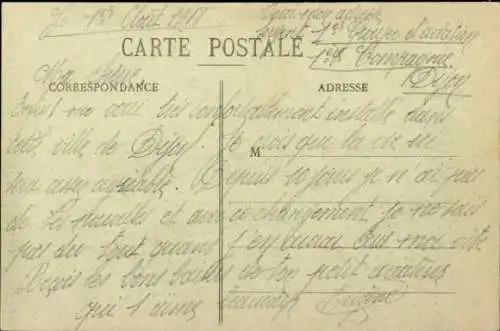 Le 1er Août 1918
mon adresse
1er Groupe d'aviation
1ère Compagnie
Dijon
CARTE POSTALE
CORRESPONDANCE
ADRESSE
M
Ma chérie,
me voici très confortablement installé dans
cette ville de Dijon. Je crois que la vie me
sera assez agréable. Depuis 10 jours je n'ai pas
de tes nouvelles et avec ce changement je ne sais
pas du tout quand j'en aurai. Écris moi vite
Reçois les bons baisers de ton petit aviateur
qui t'aime beaucoup Eugène